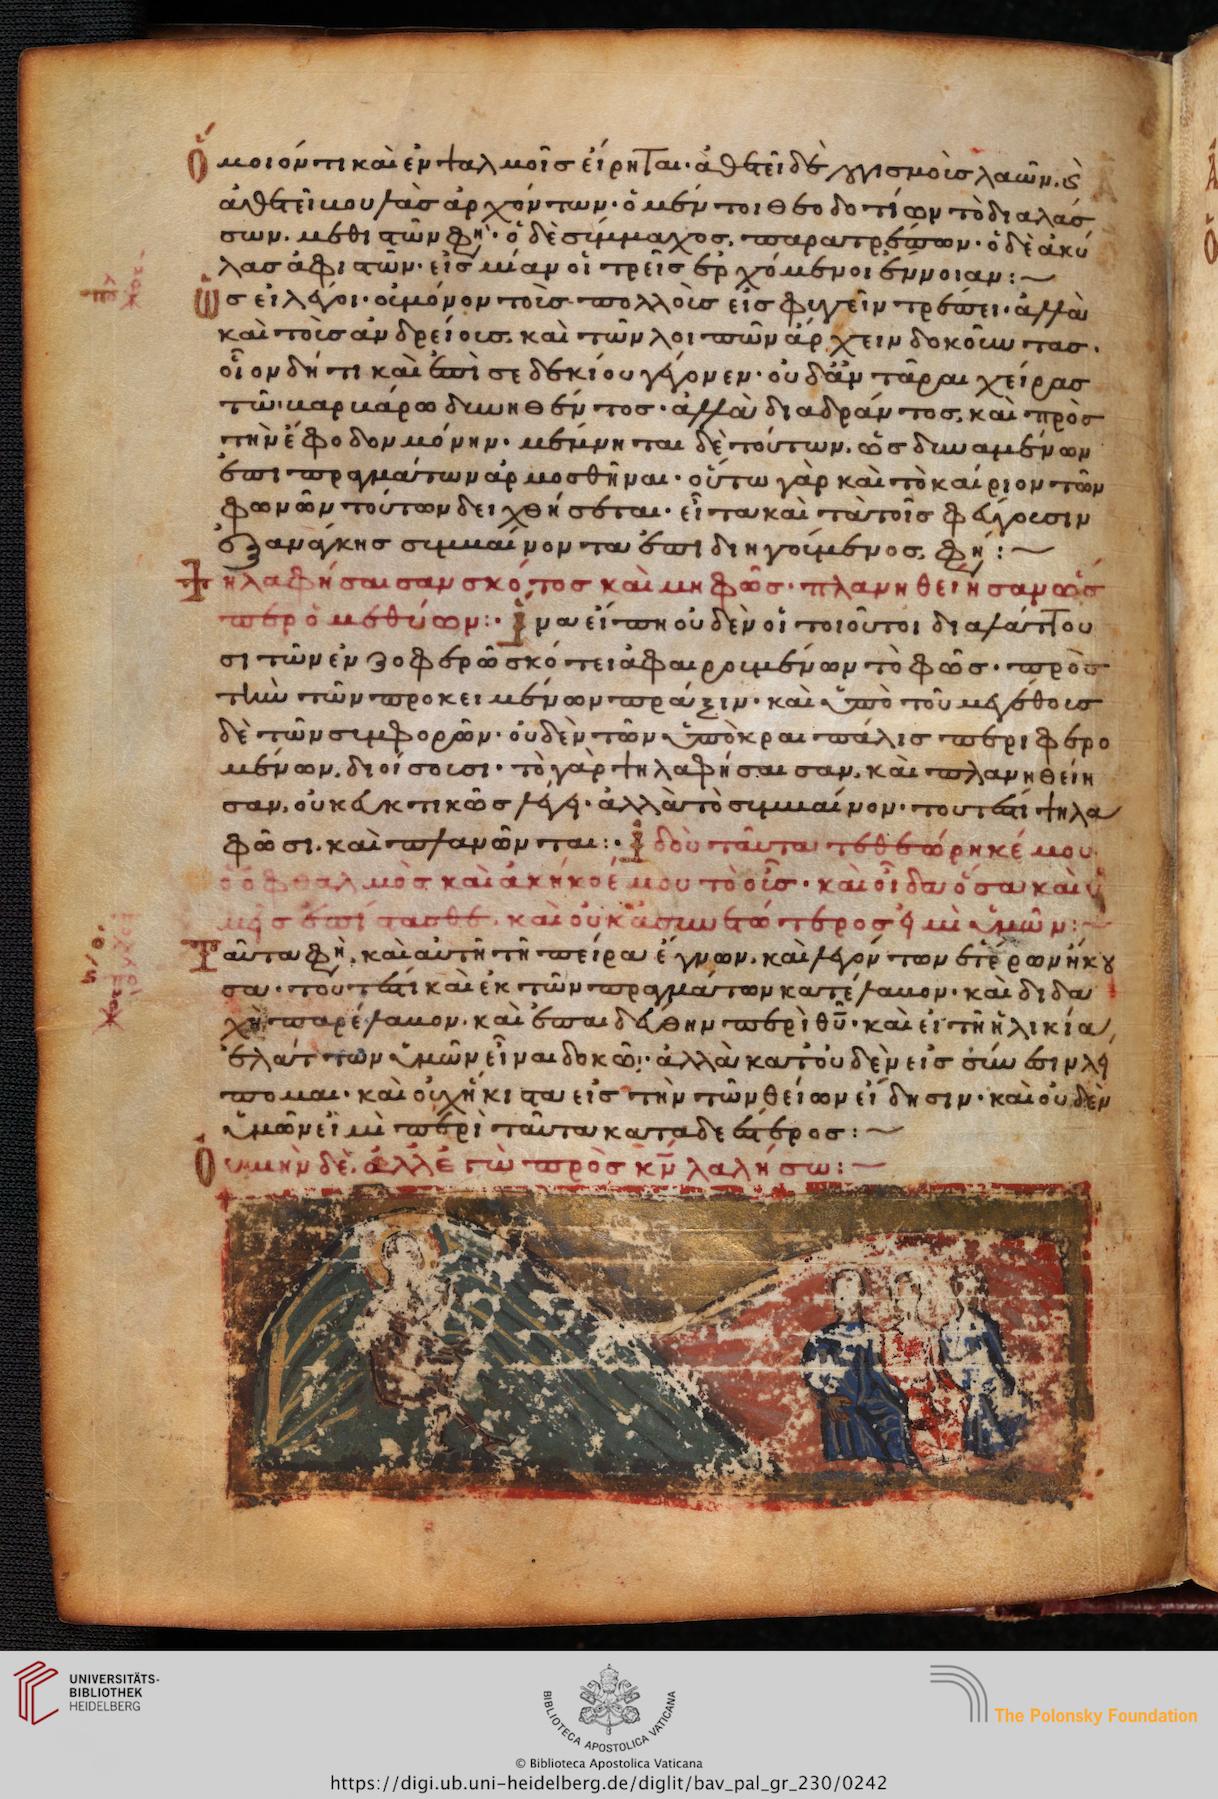 Ὅμοιόν τι καὶ ἐν ψαλμοῖς εἴρηται· ἀθετεῖ δὲ λογισμοὺς λαῶν. καὶ
ἀθετεῖ βουλὰς ἀρχόντων· ὁ μέντοι θεοδοτίων τὸ διαλάσ
σων. μεθιστῶν φη· ὁ δὲ σύμμαχος, παρατρέπων· ὁ δὲ ἀκύ
λας ἀφιστῶν· εἰς μίαν οἱ τρεῖς ἐρχόμενοι ἔννοιαν:
καὶ τοῖς ἀνδρείοις, καὶ τῶν λοιπῶν ἄρχειν δοκοῦντας.
οἷον δή τι καὶ ἐπὶ σεδεκίου γέγονεν· οὐδ' ἂν τᾶραι χεῖρας
τῶ βαρβάρω δυνηθέντος· ἀλλὰ διαδράντος, καὶ πρὸς
τὴν ἔφοδον μόνην· μέμνηται δὲ τούτων, ὡς δυναμένων
ἐπὶ πραγμάτων ἁρμοσθῆναι· οὕτω γὰρ καὶ τὸ καίριον τῶν
φωνῶν τούτων δειχθήσεται· εἶτα καὶ τὰ τοῖς
ἐξανάγκης συμβαίνοντα ἐπιδιηγούμενος, φη:
Ψηλαφήσαισαν σκότος καὶ μὴ φῶς· πλανηθείησαν ὥσ
περ ὁ μεθύων: ἵνα εἴπη οὐδὲν οἱ τοιοῦτοι διαλάττου
σι τῶν ἐν ζοφερῶ σκότει ἀφαιρουμένων τὸ φῶς· πρὸς
τὴν τῶν προκειμένων πράξιν· καὶ ὑπὸ τοῦ μεγέθους
δὲ τῶν συμφορῶν· οὐδὲν τῶν ὑπὸ κραιπάλης περιφερο
μένων, διοίσουσι· τὸ γὰρ ψηλαφήσαισαν, καὶ πλανηθείη
σαν, οὐκ εὐκτικῶς λέγει· ἀλλὰ τὸ συμβαῖνον· τουτέστι ψηλα
φῶσι, καὶ πλανῶνται: Ἰδοὺ ταῦτα τεθεώρηκέ μου
ὁ ὀφθαλμὸς καὶ ἀκήκοέ μου τὸ οὖς· καὶ οἶδα ὅσα καὶ ὑ
μεῖς ἐπίστασθε. καὶ οὐκ ἀσυνετώτερος εἰμὶ ὑμῶν:
Ταῦτα φη, καὶ αὐτῆ τῆ πείρα ἔγνων, καὶ λεγόντων ἑτέρων ἤκου
σα· τουτέστι καὶ ἐκ τῶν πραγμάτων κατέλαβον· καὶ διδα
χῆ παρέλαβον. καὶ ἐπαιδεύθην περὶ θῦ· καὶ εἰ τῆ ἡλικία,
ἐλάττων ὑμῶν εἶναι δοκῶ· ἀλλὰ κατ' οὐδὲν εἰς σύνεσιν λεί
πομαι· καὶ οὐχ ἥκιστα εἰς τὴν τῶν θείων εἴδησιν· καὶ οὐδὲν
ὑμῶν εἰμὶ περὶ ταῦτα καταδεέστερος:
Οὐ μὴν δὲ, ἀλλ' ἐγὼ πρὸς κν λαλήσω:
UNIVERSITÄTS-
BIBLIOTHEK
HEIDELBERG
BIBLIOTECA APOSTOLICA VATICANA
© Biblioteca Apostolica Vaticana
The Polonsky Foundation
https://digi.ub.uni-heidelberg.de/diglit/bav_pal_gr_230/0242